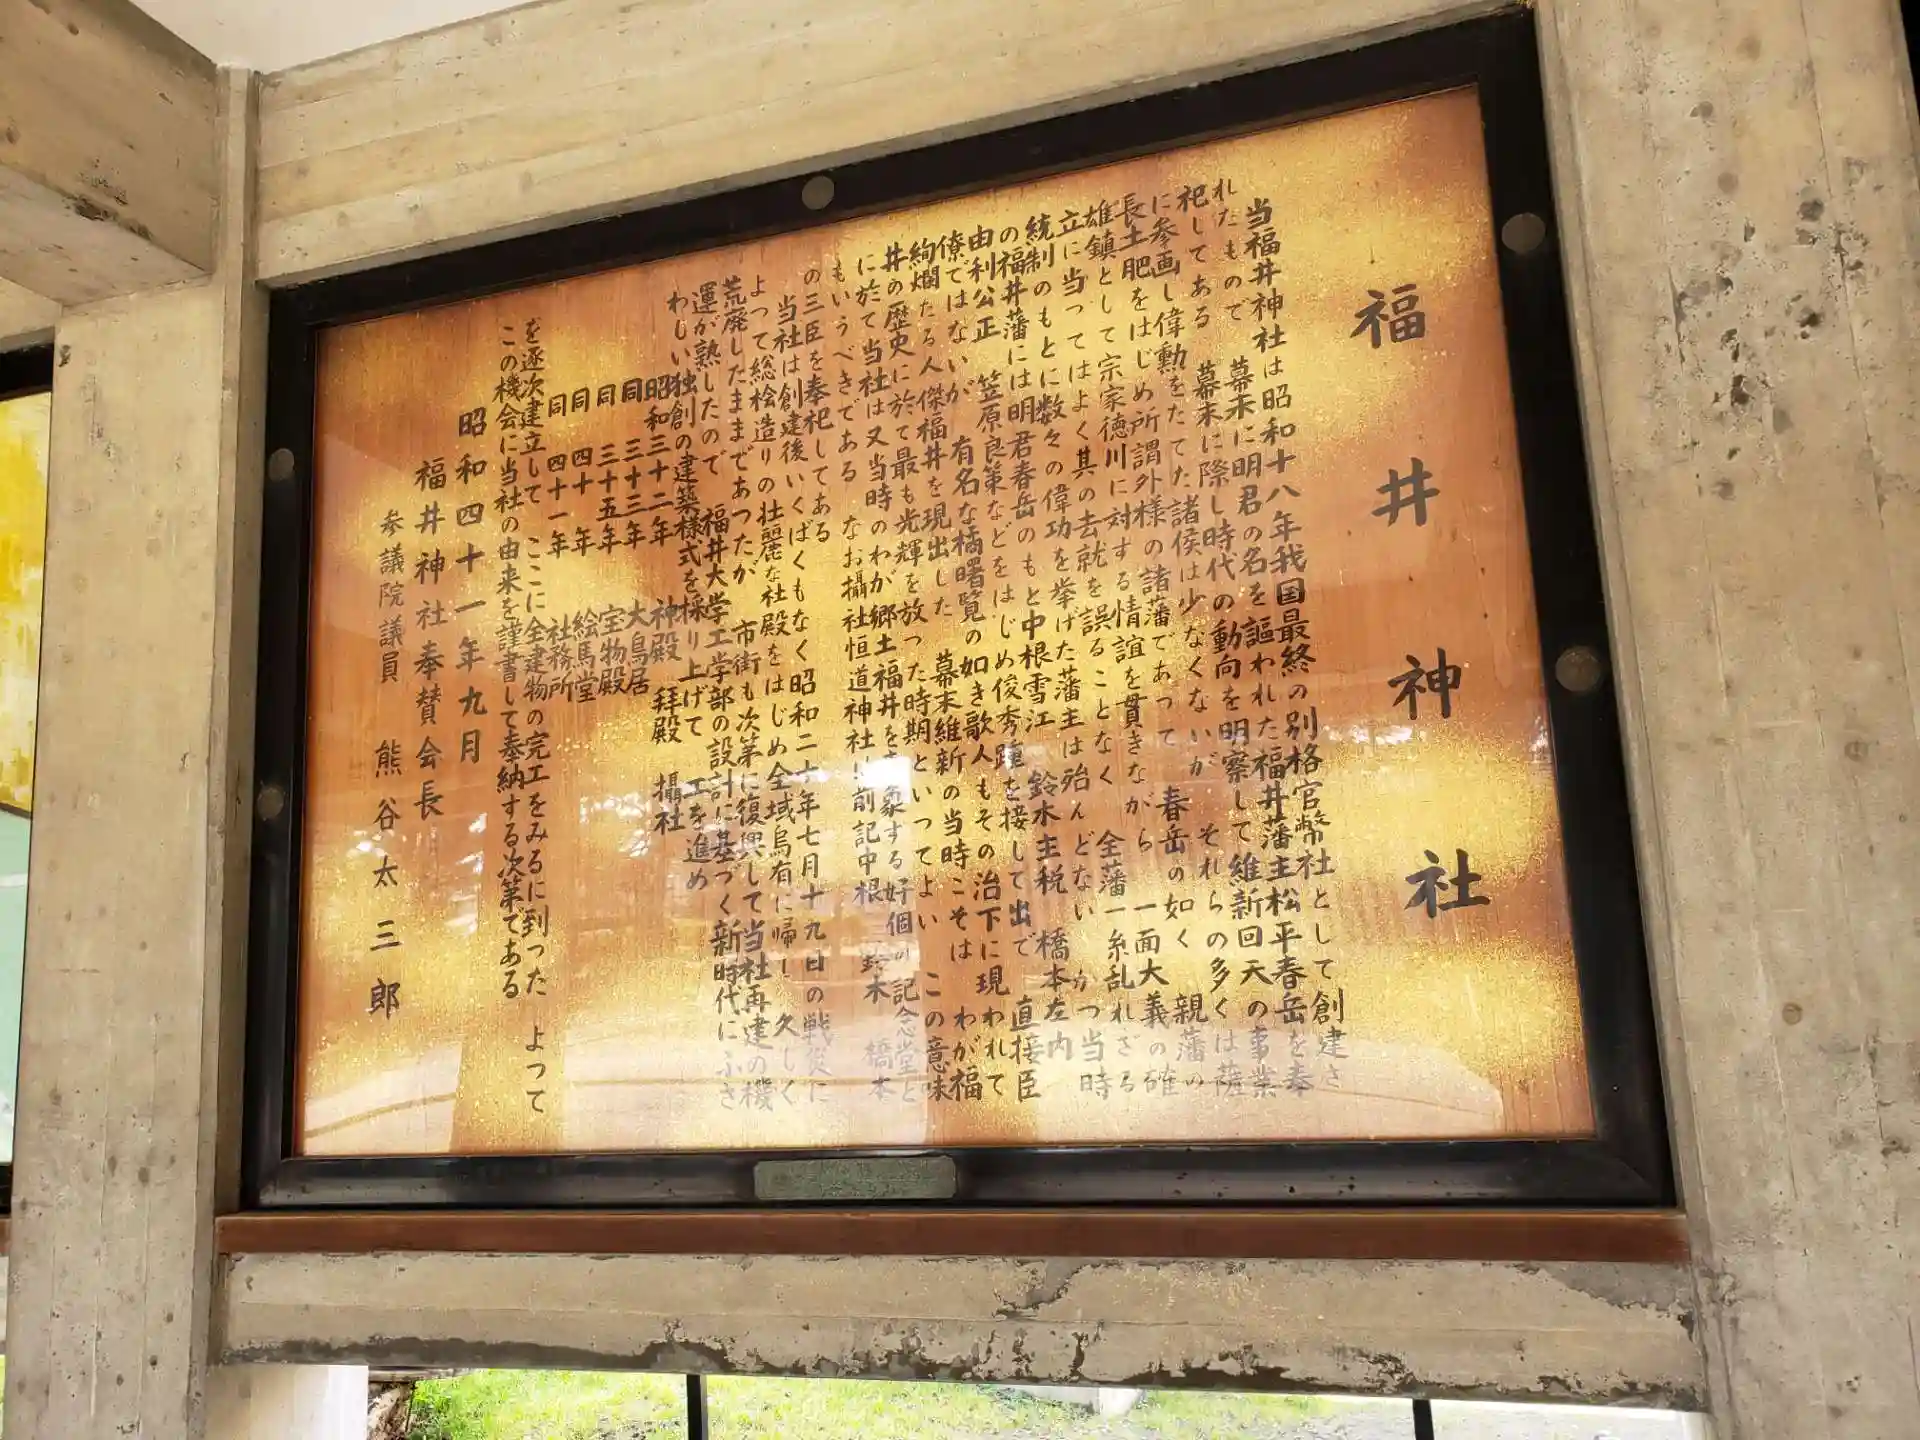 福井神社
当福井神社は昭和十八年我国最終の別格官幣社として創建さ
れたもので　幕末に明君の名を謳われた福井藩主松平春岳を奉
祀してある　幕末に際し時代の動向を明察して維新回天の事業
に参画し偉勲をたてた諸侯は少なくないが　それらの多くは薩
長土肥をはじめ所謂外様の諸藩であって　春岳の如く　親藩の
雄鎮として宗家徳川に対する情誼を貫きながら　一面大義の確
立に当ってはよく其の去就を誤ることなく　全藩一糸乱れざる
統制のもとに数々の偉功を挙げた藩主は殆んどない　かつ当時
の福井藩には明君春岳のもと中根雪江　鈴木主税　橋本左内
由利公正　笠原良策などをはじめ俊秀踵を接して出で　直接臣
僚ではないが　有名な橘曙覧の如き歌人もその治下に現われて
絢爛たる人傑福井を現出した　幕末維新の当時こそは　わが福
井の歴史に於て最も光輝を放った時期といってよい　この意味
に於て当社は又当時のわが郷土福井を象する好個の記念堂と
もいうべきである　なお摂社恒道神社は前記中根　鈴木　橋本
の三臣を奉祀してある
当社は創建後いくばくもなく昭和二十年七月十九日の戦災に
よって総桧造りの壮麗な社殿をはじめ全域烏有に帰し　久しく
荒廃したままであつたが　市街も次第に復興して当社再建の機
運が熟したので　福井大学工学部の設計に基づく新時代にふさ
わしい独創の建築様式を採り上げて　工を進め
昭和三十二年　神殿　拝殿　摂社
同　三十三年　大鳥居
同　三十五年　宝物殿
同　四十　年　絵馬堂
同　四十一年　社務所
を逐次建立して　ここに全建物の完工をみるに到った　よつて
この機会に当社の由来を謹書して奉納する次第である
昭和四十一年九月
福井神社奉賛会長
参議院議員　熊谷太三郎